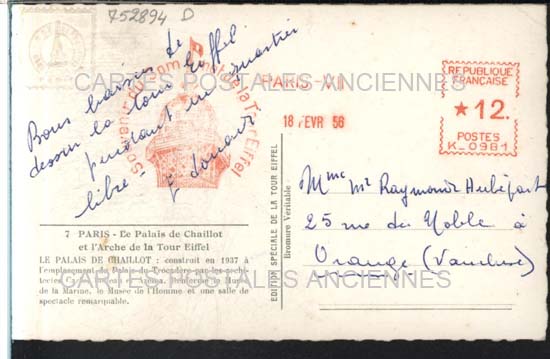 752894 D
CARTES POSTALES ANCIENNES
Souvenir du Sommet de la Tour Eiffel
PARIS-VII
18 FEVR 56
REPUBLIQUE
FRANCAISE
★12.
POSTES
K_0981
Bons baisers de
dessus la tour Eiffel
pendant un quartier
libre
Mme Mr Raymond
25 rue du Noble à
Orange (Vaucluse)
7 PARIS - Le Palais de Chaillot
et l'Arche de la Tour Eiffel
LE PALAIS DE CHAILLOT : construit en 1937 à
l'emplacement du Palais du Trocadéro par les archi-
tectes Carlu, Boileau et Azéma. Renferme le Musée
de la Marine, le Musée de l'Homme et une salle de
spectacle remarquable.
CARTES POSTALES ANCIENNES
EDITION SPÉCIALE DE LA TOUR EIFFEL
Bromure Véritable